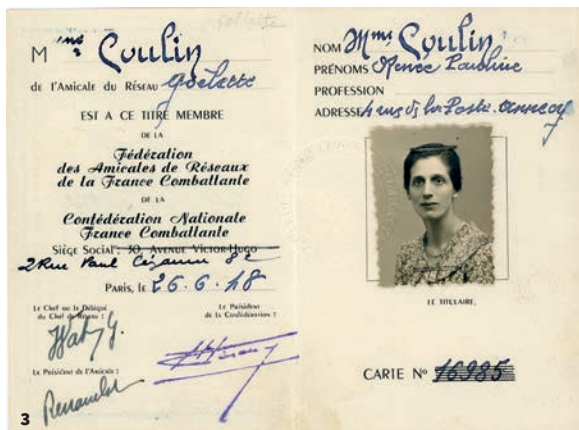 Goëlette
Mme Coulin
de l'Amicale du Réseau Goélette
EST A CE TITRE MEMBRE
DE LA
Fédération
des Amicales de Réseaux
de la France Combattante
DE LA
Confédération Nationale
France Combattante
SIÈGE SOCIAL : 30, AVENUE VICTOR-HUGO
2 Rue Paul Cézanne 8e
PARIS, le 26.6.48
Le Chef ou le Délégué
du Chef de Réseau :
Le Président
de la Confédération :
Le Président de l'Amicale :
3
NOM Mme Coulin
PRÉNOMS Renée Pauline
PROFESSION
ADRESSE 4 rue de la Poste. Annecy
LE TITULAIRE,
CARTE No 16985